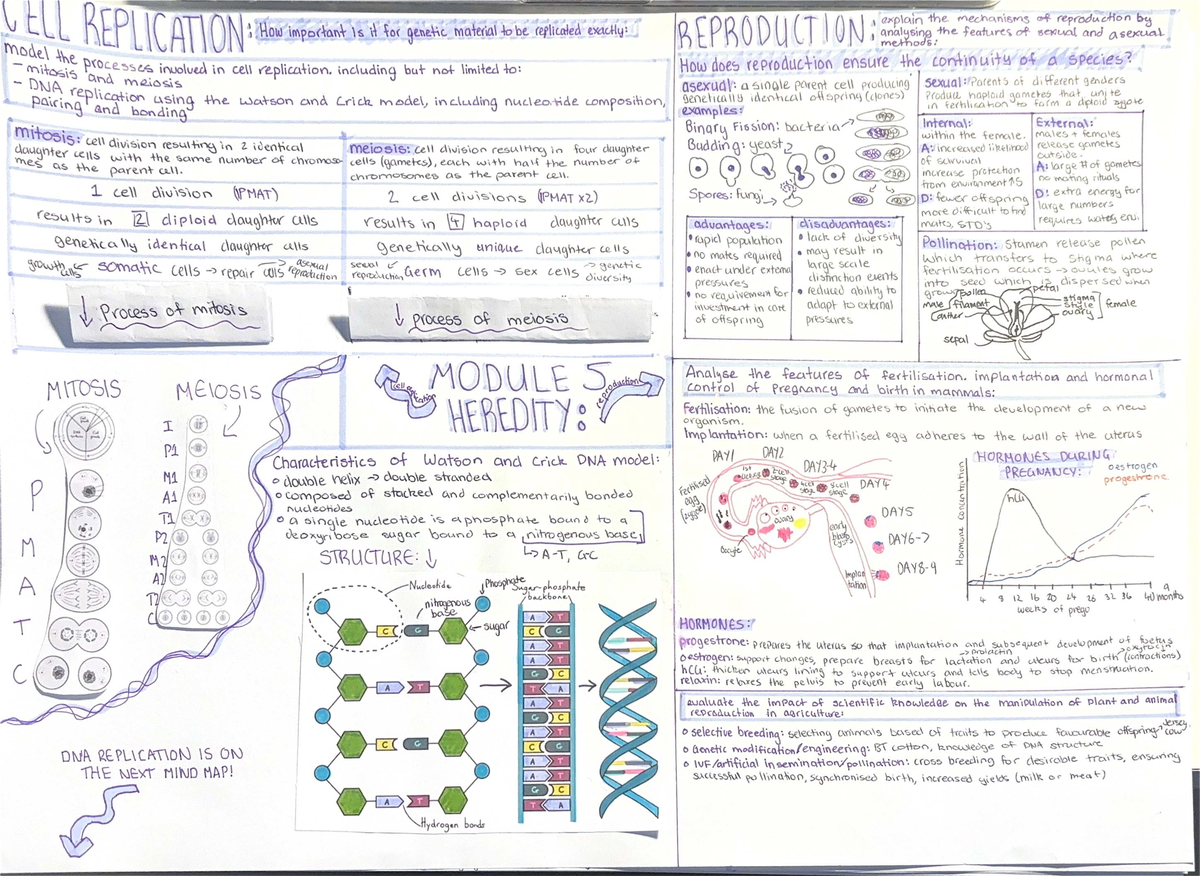 CELL REPLICATION: How important is it for genetic material to be replicated exactly:
model the processes involved in cell replication, including but not limited to:
- mitosis and meiosis
- DNA replication using the Watson and Crick model, including nucleotide composition,
pairing and bonding
mitosis: cell division resulting in 2 identical
daughter cells with the same number of chromoso-
mes as the parent cell.
1 cell division (IPMAT)
results in 2 diploid daughter cells
genetically identical daughter cells
growth cells somatic cells → repair cells → asexual reproduction
↓ Process of mitosis
meiosis: cell division resulting in four daughter
cells (gametes), each with half the number of
chromosomes as the parent cell.
2 cell divisions (IPMAT x2)
results in 4 haploid daughter cells
genetically unique daughter cells
sexual reproduction germ cells → sex cells → genetic diversity
↓ process of meiosis
MITOSIS
P
M
A
T
C
MEIOSIS
I
P1
M1
A1
T1
P2
M2
A2
T2
C
DNA REPLICATION IS ON
THE NEXT MIND MAP!
cell replication
MODULE 5
HEREDITY:
reproduction
Characteristics of Watson and Crick DNA model:
double helix → double stranded
composed of stacked and complementarily bonded
nucleotides
a single nucleotide is a phosphate bound to a
deoxyribose sugar bound to a nitrogenous base
A-T, G-C
STRUCTURE: ↓
Nucleotide
Phosphate
nitrogenous
base
sugar
Sugar-phosphate
backbone
C G
A T
C G
A T
Hydrogen bonds
A T
C G
T A
A T
T A
A T
T A
G C
C G
A T
T A
G C
C G
T A
REPRODUCTION: explain the mechanisms of reproduction by
analysing the features of sexual and asexual
methods:
How does reproduction ensure the continuity of a species?
asexual: a single parent cell producing
genetically identical offspring (clones)
examples:
Binary Fission: bacteria
Budding: yeast
Spores: fungi
advantages:
rapid population
no mates required
enact under external
pressures
no requirement for
investment in care
of offspring
disadvantages:
lack of diversity
may result in
large scale
distinction events
reduced ability to
adapt to external
pressures
sexual: Parents of different genders
produce haploid gametes that unite
in fertilisation to form a diploid zygote
Internal:
within the female.
A: increased likelihood
of survival
increase protection
from environment
D: fewer offspring
more difficult to find
mates, STD's
External:
males + females
release gametes
outside.
A: large # of gametes
no mating rituals
D: extra energy for
large numbers
requires watery env.
Pollination: Stamen release pollen
which transfers to Stigma where
fertilisation occurs → ovules grow
into seed which is dispersed when
grows
pollen
male filament
anther
sepal
petal
stigma
style
ovary
female
Analyse the features of fertilisation, implantation and hormonal
control of pregnancy and birth in mammals:
Fertilisation: the fusion of gametes to initiate the development of a new
organism.
Implantation: when a fertilised egg adheres to the wall of the uterus
DAY1
DAY2
DAY3-4
DAY4
DAY5
DAY6-7
DAY8-9
Fertilised
egg
(zygote)
oocyte
ovary
early
Implan
tation
HORMONES DURING
PREGNANCY:
oestrogen
progestrone
hCG
Hormone concentration
4 8 12 16 20 24 28 32 36 40
9 months
weeks of prego
HORMONES:
progestrone: prepares the uterus so that implantation and subsequent development of foetus
→ prolactin → oxytocin
oestrogen: support changes, prepare breasts for lactation and uterus for birth (contractions)
hCG: thicken uterus lining to support uterus and tells body to stop menstruation.
relaxin: relaxes the pelvis to prevent early labour.
evaluate the impact of scientific knowledge on the manipulation of plant and animal
reproduction in agriculture:
selective breeding: selecting animals based of traits to produce favourable offspring → Jersey cow
Genetic modification/engineering: BT cotton, knowledge of DNA structure
IVF/artificial insemination/pollination: cross breeding for desirable traits, ensuring
successful pollination, synchronised birth, increased yields (milk or meat)